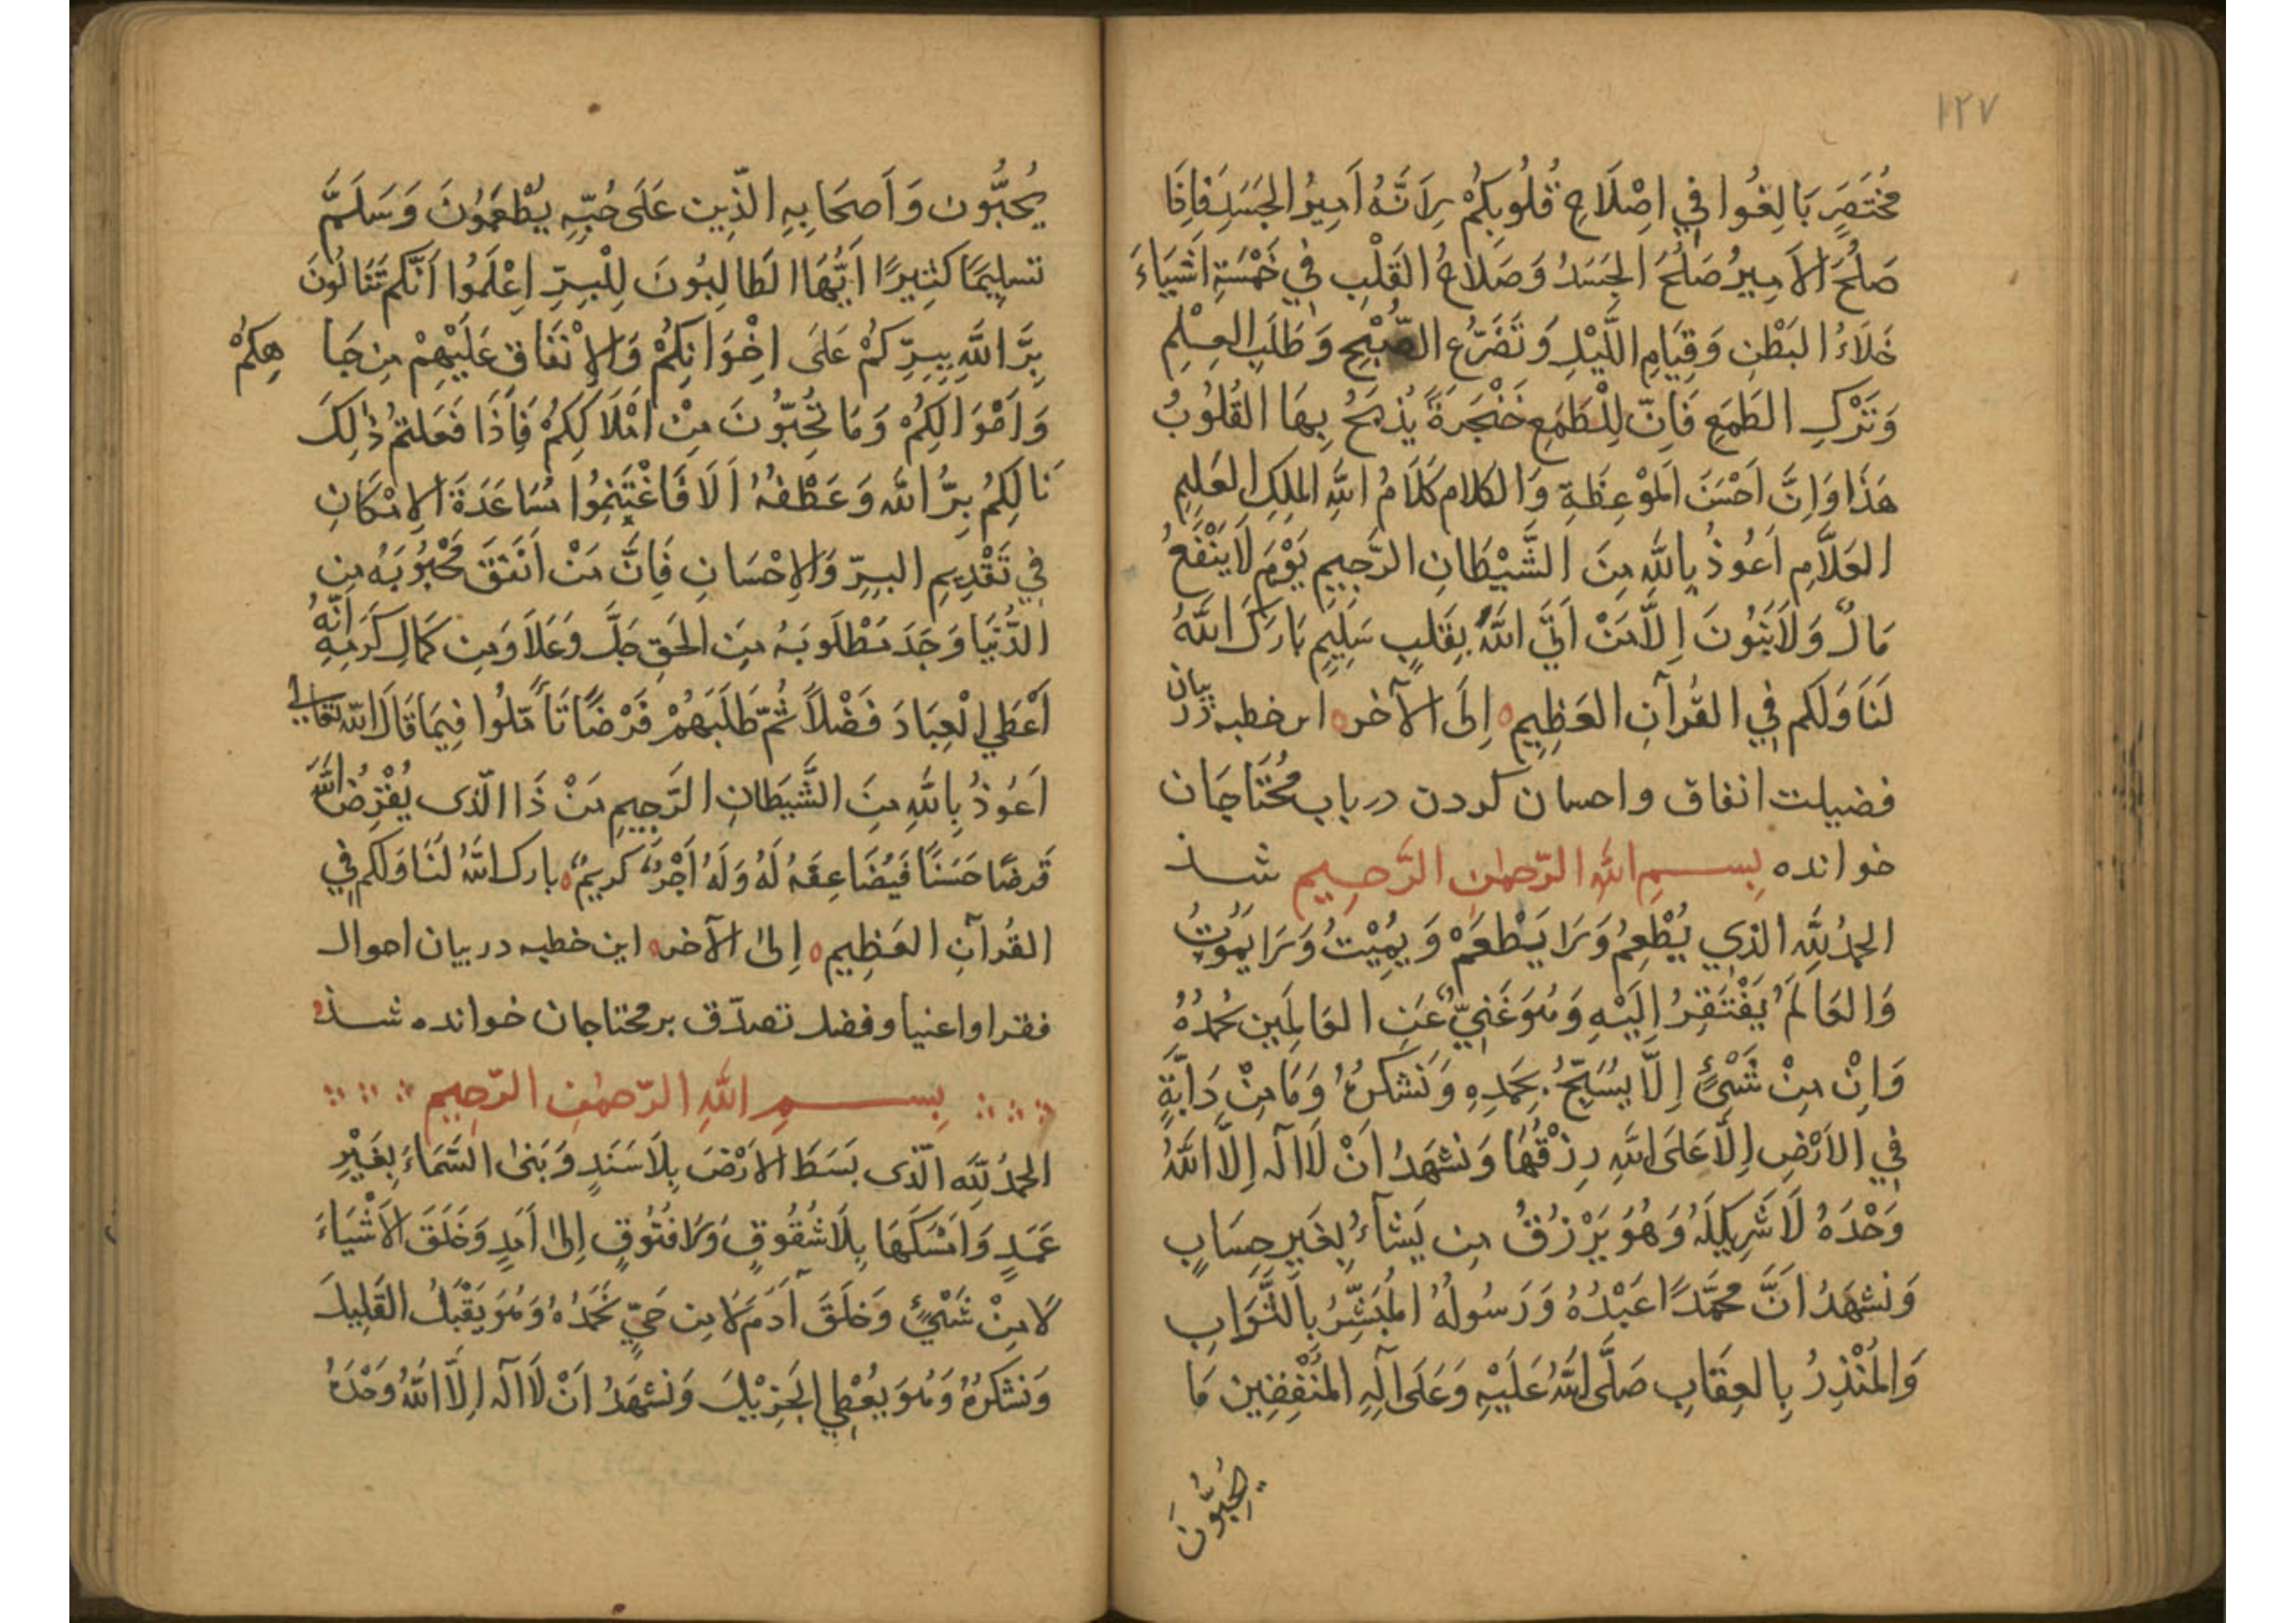 ١٢٧
مُخْتَصَرٍ بَالِغُوا فِي اِصْلَاحِ قُلُوبِكُمْ لِاَنَّهُ اَمِيرُ الجَسَدِ فَاِذَا
صَلُحَ الاَمِيرُ صَلُحَ الجَسَدُ وَصَلَاحُ القَلْبِ فِي خَمْسَةِ اَشْيَاءَ
خَلَاءُ البَطْنِ وَقِيَامِ اللَّيْلِ وَتَضَرُّعِ الصُّبْحِ وَطَلَبِ العِلْمِ
وَتَرْكِ الطَمَعِ فَاِنَّ لِلْطَمَعِ خَنْجَرَةً يُذْبَحُ بِهَا القُلُوبُ
هَذَا وَاِنَّ اَحْسَنَ المَوْعِظَةِ وَالكلام كَلَامُ اللهِ المَلِكِ العَلِيمِ
العَلَّامِ اَعُوذُ بِاللهِ مِنَ الشَّيْطَانِ الرَّجِيمِ يَوْمَ لَا يَنْفَعُ
مَالٌ وَلَا بَنُونَ اِلَّا مَنْ اَتَى اللهَ بِقَلبٍ سَلِيمٍ بَارَكَ اللهُ
لَنَا وَلَكم فِي القُرآنِ العَظِيمِ اِلَى الآخر اين خطبه در بيان
فضيلت انفاق واحسان كردن در باب مُحْتَاجَان
خوانده بِسـمِ اللهِ الرّحمٰنِ الرَّحِيمِ شـد
الحمدُ للهِ الذي يُطْعِمُ وَلَا يَطْعَمُ وَيُمِيْتُ وَلَا يَمُوتُ
وَالعَالَمُ يَفْتَقِرُ اِلَيْهِ وَهُوَ غَنِيٌّ عَنِ العَالَمِين نَحْمَدُهُ
وَاِنْ مِنْ شَيْءٍ اِلَّا يُسَبِّحُ بِحَمدِهِ وَنَشكرُهُ وَمَا مِنْ دَابَّةٍ
فِي الاَرْضِ اِلَّا عَلَى اللهِ رِزْقُهَا وَنَشهَدُ اَنْ لَا اِلٰهَ اِلَّا اللهُ
وَحْدَهُ لَا شَرِيكَ لَهُ وَهُوَ يَرْزُقُ مِن يَشآءُ بِغَيرِ حِسَابٍ
وَنَشهَدُ اَنَّ مُحَمَّدًا عَبْدُهُ وَرَسُولُهُ المُبَشِّرُ بِالثَّوَابِ
وَالمُنْذِرُ بِالعِقَابِ صَلَّى اللهُ عَلَيْهِ وَعَلَى آلِهِ المُنْفِقِين مَا
يُحِبُّونَ
يُحِبُّون وَاَصحَابِهِ الَّذِين عَلَى حُبِّهِ يُطْعِمُونَ وَسَلَّمَ
تسلِيمًا كَثِيرًا اَيُّهَا الطَالِبُونَ لِلْبِرِّ اِعْلَمُوا اَنَّكم تَنَالُونَ
بِرَّ اللهِ بِبِرِّكُمْ عَلَى اِخْوَانِكُمْ وَالاِنْفَاق عَلَيْهِمْ مِن جَا هِكُمْ
وَاَمْوَالِكُمْ وَمَا تُحِبُّونَ مِنْ اَمْلَاكِكُمْ فَاِذَا فَعَلتُمْ ذٰلِكَ
نَالَكُمْ بِرُّ اللهِ وَعَطْفُهُ اَلَا فَاغْتَنِمُوا مُسَاعَدَةَ الاِمْكَانِ
فِي تَقْدِيمِ البِرِّ وَالاِحْسَانِ فَاِنَّ مَنْ اَنْفَقَ مَحْبُوبَهُ مِن
الدُّنْيَا وَجَدَ مَطْلُوبَهُ مِنَ الحَقِّ جَلَّ وَعَلَا وَمِن كَمَالِ كَرَمِهِ اَنَّهُ
اَعْطَى الْعِبَادَ فَضْلًا ثُمّ طَلَبَهُمْ قَرْضًا تَأَمّلُوا فِيمَا قَالَ اللهُ تعالى
اَعُوذُ بِاللهِ مِنَ الشَّيطَانِ الرَّجِيمِ مَنْ ذَا الَّذى يُقْرِضُ اللهَ
قَرضًا حَسَنًا فَيُضَاعِفَهُ لَهُ وَلَهُ اَجْرٌ كريمٌ بارك اللهُ لَنَا وَلكم فِي
القُرآنِ العَظِيمِ اِلىٰ الآخر اين خطبه در بيان احوال
فقرا واغنيا وفضل تصدّق بر محتاجان خوانده شـد
بِســـمِ اللهِ الرّحمٰنِ الرّحِيمِ
الحمدُ للهِ الّذى بَسَطَ الاَرْضَ بِلَا سَنَدٍ وَبَنىٰ السَّمَاءَ بِغَيْرِ
عَمَدٍ وَاَمْسَكَهَا بِلَا شُقُوقٍ وَلَا فُتُوقٍ اِلىٰ اَمَدٍ وَخَلَقَ الاَشْيَاءَ
لَا مِنْ شَيْءٍ وَخَلَقَ آدَمَ لَا مِن حَيٍّ نَحْمَدُهُ وَهُوَ يَقْبَلُ القَلِيلَ
وَنَشكرُهُ وَهُوَ يُعْطِي الجَزِيْلَ وَنَشهَدُ اَنْ لَا اِلٰهَ اِلَّا اللهُ وَحْدَهُ